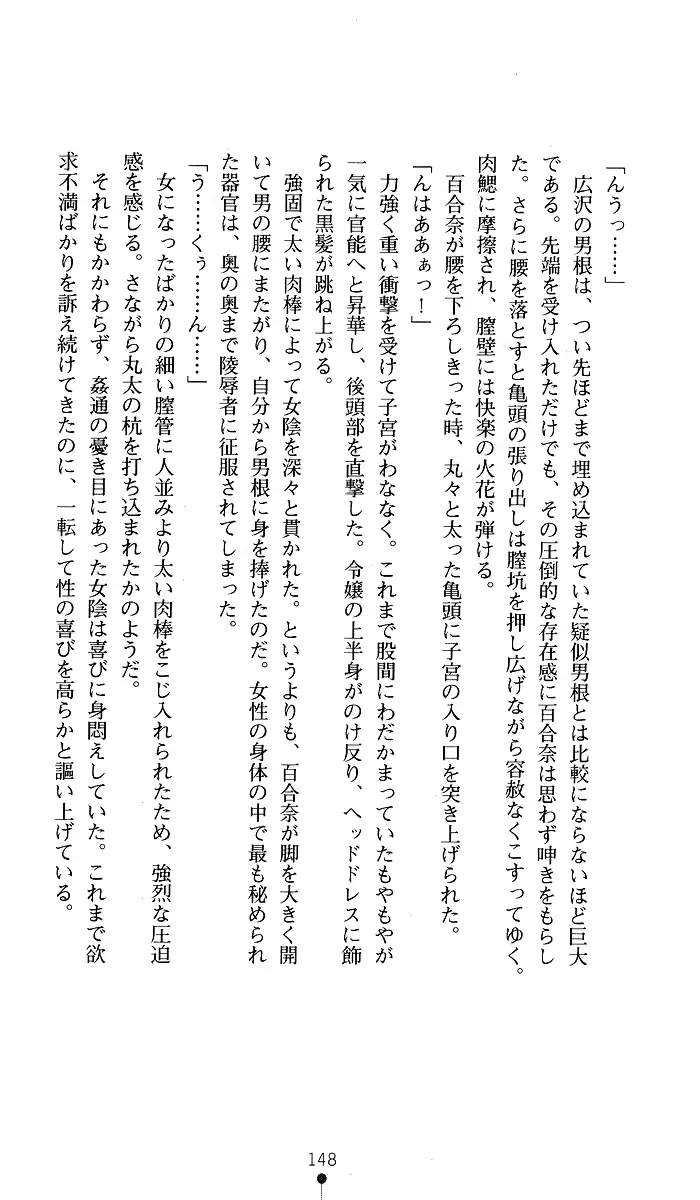 「んうっ……」
広沢の男根は、つい先ほどまで埋め込まれていた疑似男根とは比較にならないほど巨大
である。先端を受け入れただけでも、その圧倒的な存在感に百合奈は思わず呻きをもらし
た。さらに腰を落とすと亀頭の張り出しは膣坑を押し広げながら容赦なくこすってゆく。
肉鰓に摩擦され、膣壁には快楽の火花が弾ける。
百合奈が腰を下ろしきった時、丸々と太った亀頭に子宮の入り口を突き上げられた。
「んはああぁっ！」
力強く重い衝撃を受けて子宮がわななく。これまで股間にわだかまっていたもやもやが
一気に官能へと昇華し、後頭部を直撃した。令嬢の上半身がのけ反り、ヘッドドレスに飾
られた黒髪が跳ね上がる。
強固で太い肉棒によって女陰を深々と貫かれた。というよりも、百合奈が脚を大きく開
いて男の腰にまたがり、自分から男根に身を捧げたのだ。女性の身体の中で最も秘められ
た器官は、奥の奥まで陵辱者に征服されてしまった。
「う……くぅ……ん……」
女になったばかりの細い膣管に人並みより太い肉棒をこじ入れられたため、強烈な圧迫
感を感じる。さながら丸太の杭を打ち込まれたかのようだ。
それにもかかわらず、姦通の憂き目にあった女陰は喜びに身悶えしていた。これまで欲
求不満ばかりを訴え続けてきたのに、一転して性の喜びを高らかと謳い上げている。
148